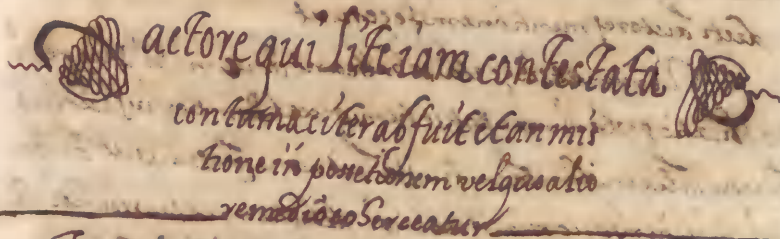 De actore qui lite iam contestata
contumaciter abfuit et an mis
tione in possetionem vel quo alio
remedio coherceatur